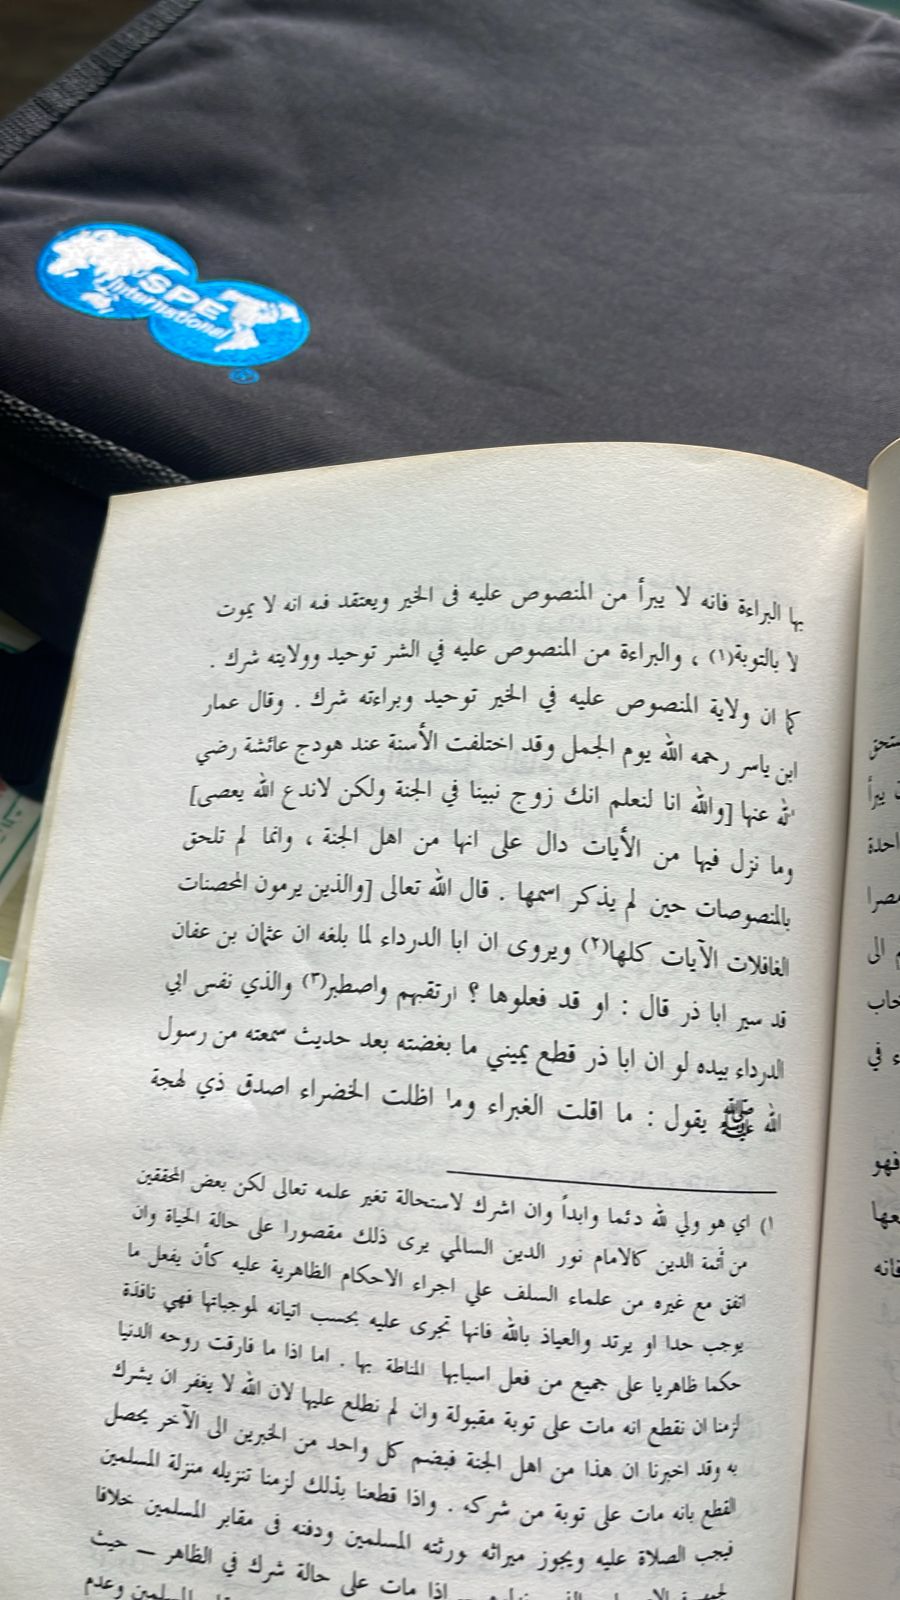 SPE
International
بها البراءة فانه لا يبرأ من المنصوص عليه فى الخير ويعتقد فيه انه لا يموت
لا بالتوبة(١) ، والبراءة من المنصوص عليه في الشر توحيد وولايته شرك .
كما ان ولاية المنصوص عليه في الخير توحيد وبراءته شرك . وقال عمار
ابن ياسر رحمه الله يوم الجمل وقد اختلفت الأسنة عند هودج عائشة رضي
لله عنها [والله انا لنعلم انك زوج نبينا في الجنة ولكن لاندع الله يعصى]
وما نزل فيها من الأيات دال على انها من اهل الجنة ، وانما لم تلحق
بالمنصوصات حين لم يذكر اسمها . قال الله تعالى [والذين يرمون المحصنات
الغافلات الآيات كلها(٢) ويروى ان ابا الدرداء لما بلغه ان عثمان بن عفان
قد سير ابا ذر قال : او قد فعلوها ؟ ارتقبهم واصطبر(٣) والذي نفس ابي
الدرداء بيده لو ان ابا ذر قطع يميني ما بغضته بعد حديث سمعته من رسول
الله ﷺ يقول : ما اقلت الغبراء وما اظلت الخضراء اصدق ذي لهجة
١) اي هو ولي لله دئما وابداً وان اشرك لاستحالة تغير علمه تعالى لكن بعض المحققين
من أئمة الدين كالامام نور الدين السالمي يرى ذلك مقصورا على حالة الحياة وان
اتفق مع غيره من علماء السلف علي اجراء الاحكام الظاهرية عليه كأن يفعل ما
يوجب حدا او يرتد والعياذ بالله فانها تجرى عليه بحسب اتيانه لموجباتها فهي نافذة
حكما ظاهريا على جميع من فعل اسبابها المناطة بها . اما اذا ما فارقت روحه الدنيا
لزمنا ان نقطع انه مات على توبة مقبولة وان لم نطلع عليها لان الله لا يغفر ان يشرك
به وقد اخبرنا ان هذا من اهل الجنة فبضم كل واحد من الخبرين الى الآخر يحصل
القطع بانه مات على توبة من شركه . واذا قطعنا بذلك لزمنا تنزيله منزلة المسلمين
فيجب الصلاة عليه ويجوز ميراثه ورثته المسلمين ودفنه فى مقابر المسلمين خلافا
اذا مات على حالة شرك في الظاهر — حيث
المسلمين وعدم
ستحق
يبرأ
احدة
الى
في
فهو